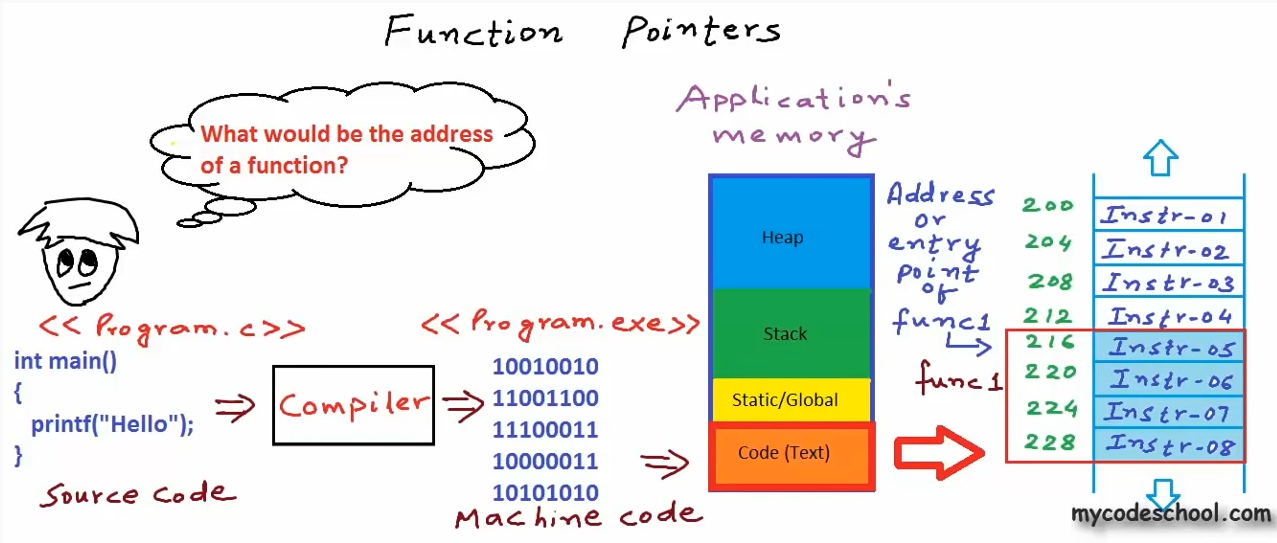 Function Pointers
What would be the address
of a function?
<< Program.c >>
int main()
{
printf("Hello");
}
Source code
Compiler
<< Program.exe >>
10010010
11001100
11100011
10000011
10101010
Machine code
Application's
memory
Heap
Stack
Static/Global
Code (Text)
Address
or
entry
point
of
func1
func1
200 Instr-01
204 Instr-02
208 Instr-03
212 Instr-04
216 Instr-05
220 Instr-06
224 Instr-07
228 Instr-08
mycodeschool.com